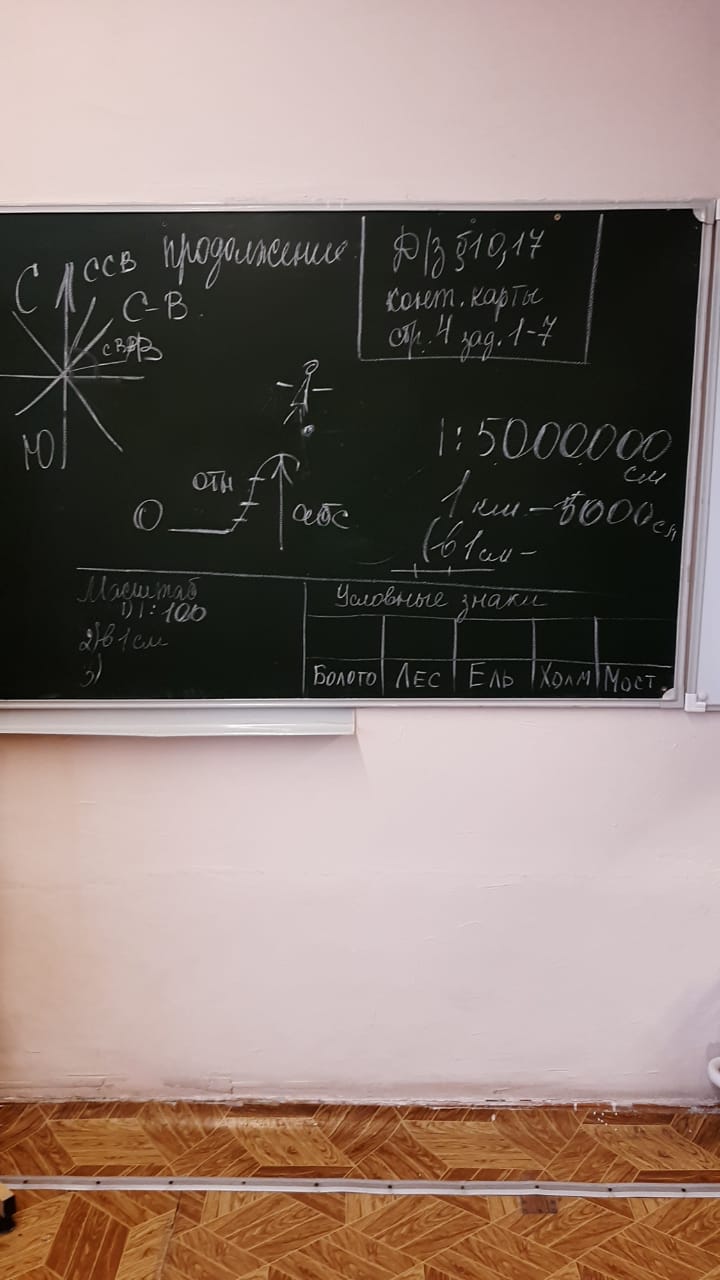 продолжение
Д/З §10,17
конт. карты
стр. 4 зад. 1-7
С
ССВ
С-В.
Ю
О
отн
абс
1:5000000
см
1 км -
(в 1 см -
Масштаб
1) 1:100
2) в 1 см
3)
Условные знаки
Болото Лес Ель Холм Мост